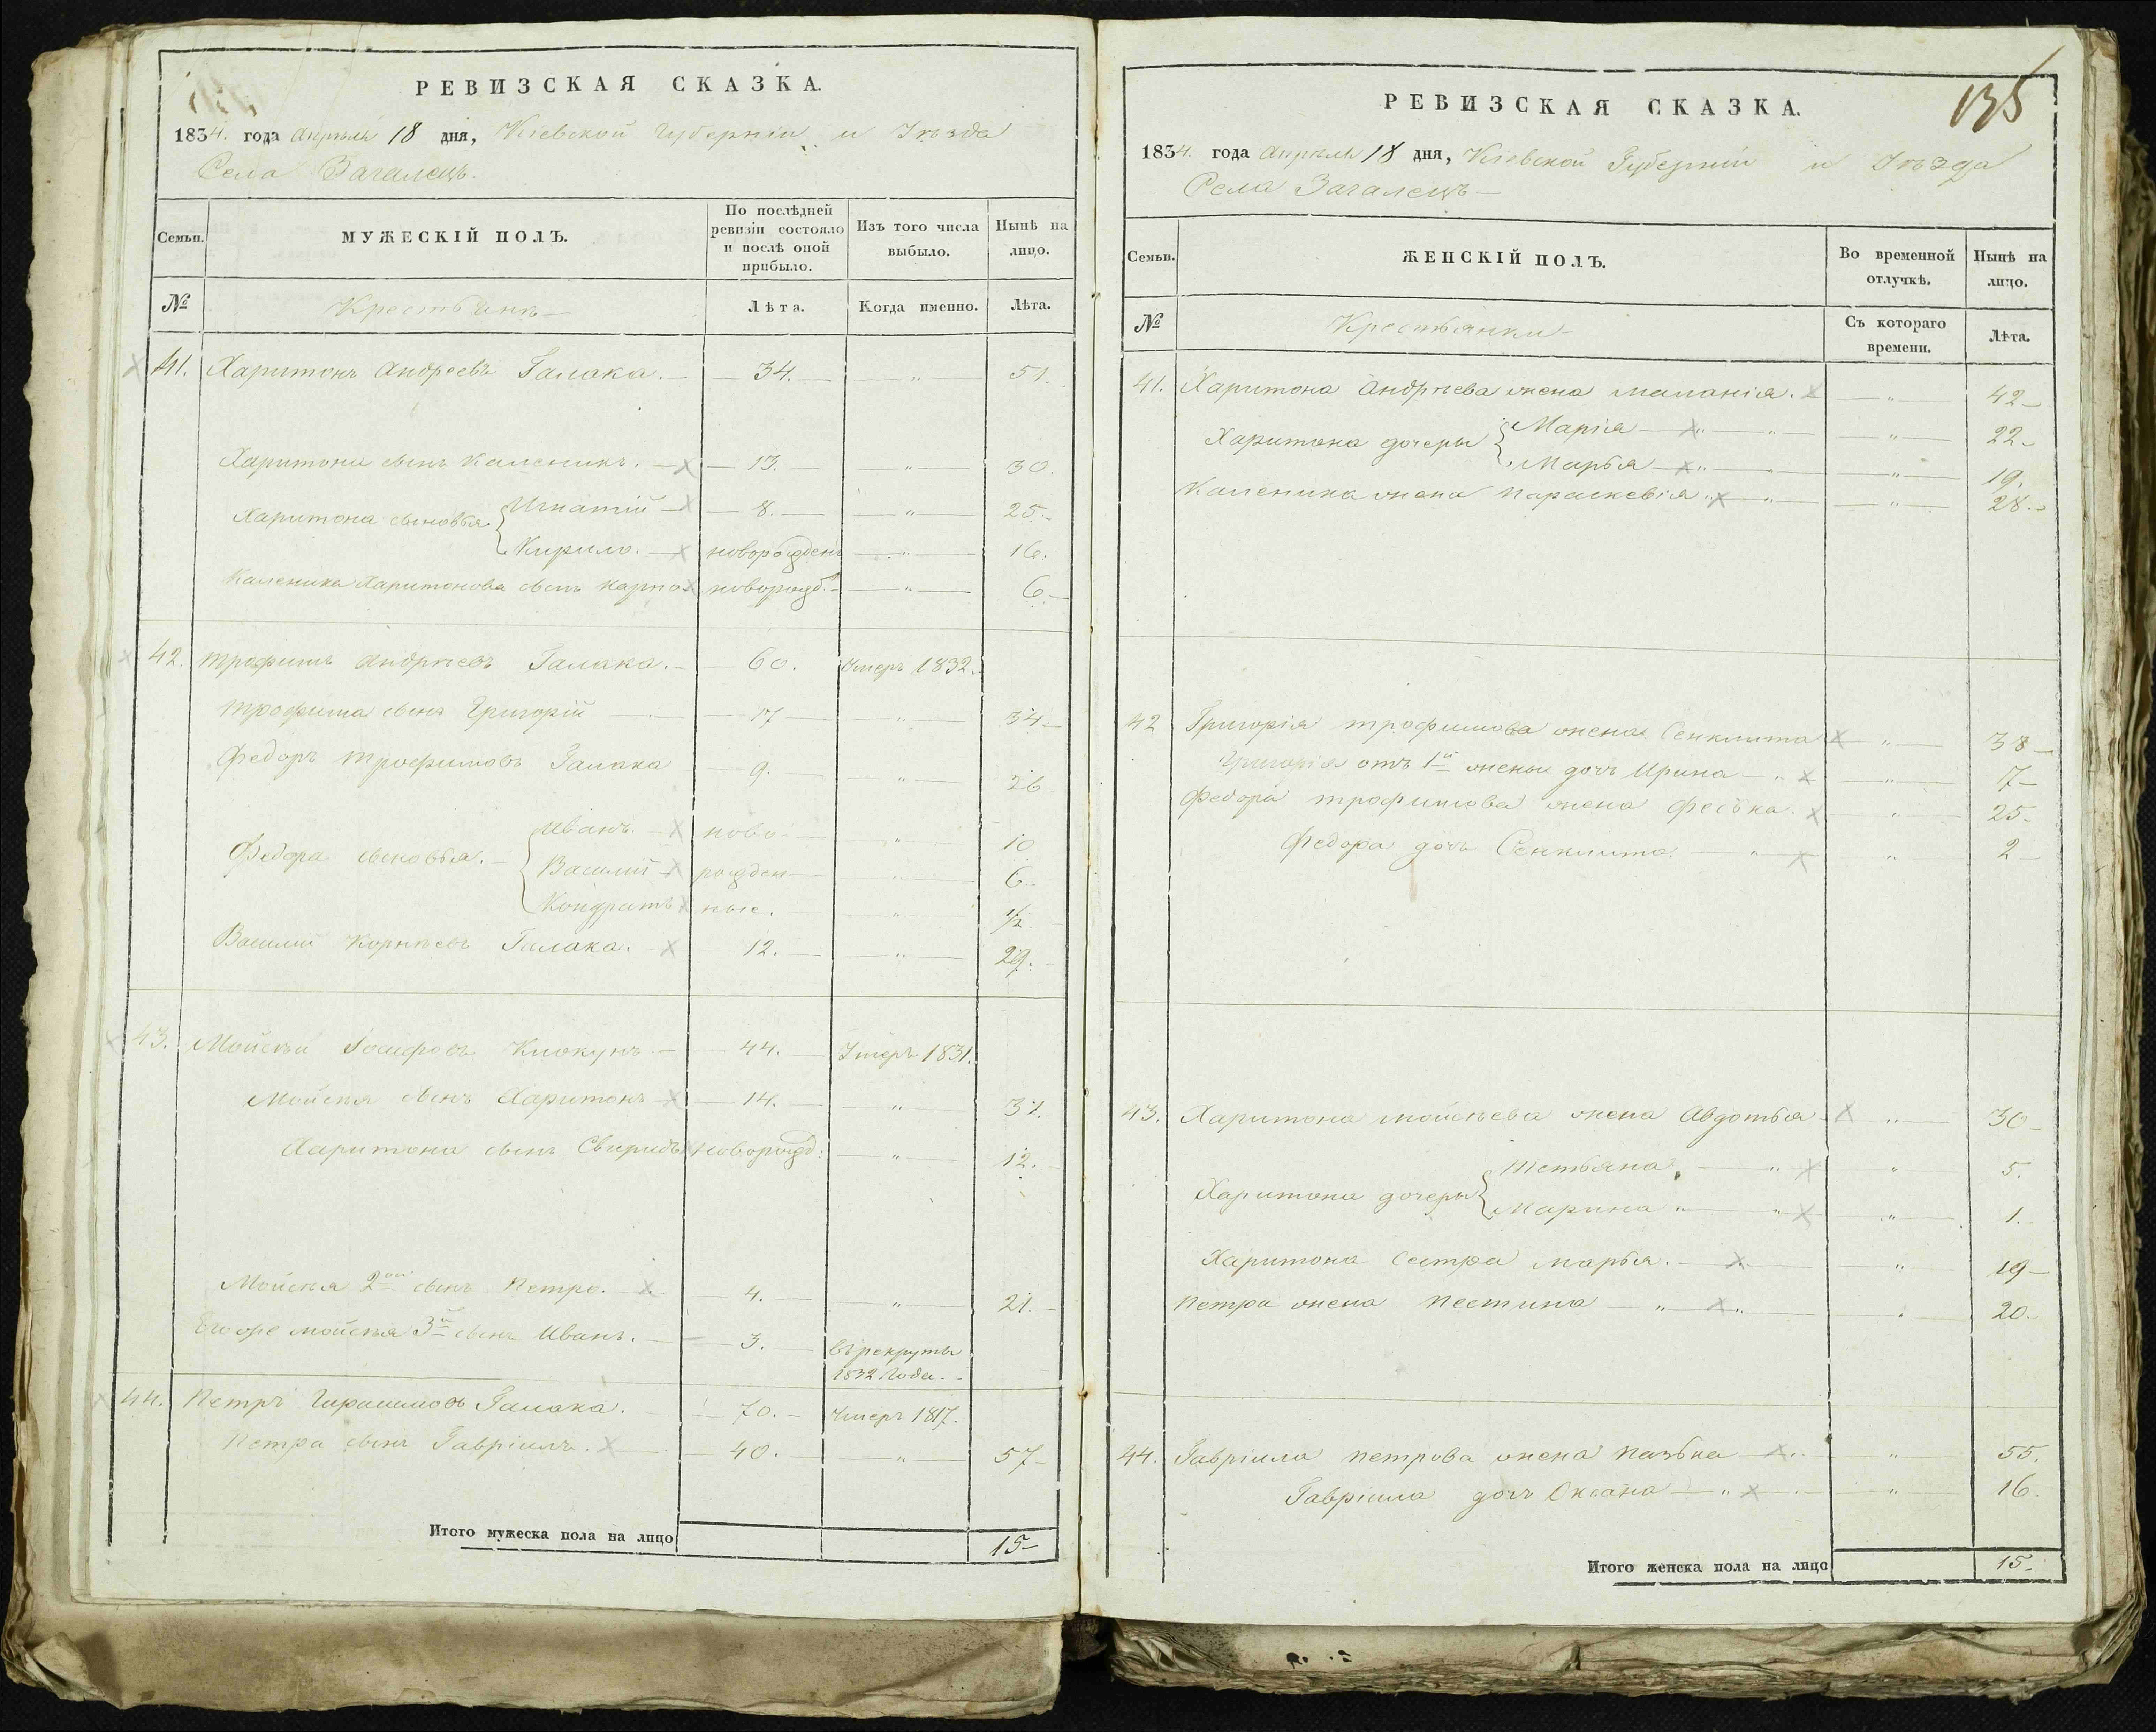 РЕВИЗСКАЯ СКАЗКА.
1834. года Апрѣля 18 дня, Кіевской Губерніи и Уѣзда
Села Загалецъ.
Семьи.
МУЖЕСКІЙ ПОЛЪ.
По послѣдней ревизіи состояло и послѣ оной прибыло.
Изъ того числа выбыло.
Нынѣ на лицо.
№
Крестьяне
Лѣта.
Когда именно.
Лѣта.
41. Харитонъ Андреевъ Галака. 34. " 51.
Харитона сынъ Каленикъ. 13. " 30.
Харитона сыновья
Игнатій 8. " 25.
Кирило. новорожденъ " 16.
Каленика Харитонова сынъ Карпо новорожд. " 6.
42. Трофимъ Андрѣевъ Галака. 60. Умеръ 1832.
Трофима сынъ Григорій 17 " 34
Федоръ Трофимовъ Галака 9. " 26
Федора сыновья.
Иванъ. ново " 10
Василій рожден " 6
Кондратъ ные. " 1/2
Василій Корнѣевъ Галака. 12. " 29.
43. Мойсѣй Іосифовъ Клокунъ. 44. Умеръ 1831.
Мойсѣя сынъ Харитонъ 14. " 31.
Харитона сынъ Свиридъ новорожд: " 12.
Мойсѣя 2ой сынъ Петро. 4. " 21.
Мойсѣя 3й сынъ Иванъ. 3. въ рекруты
1832 Года.
44. Петръ Гарасимовъ Галака. 70. Умеръ 1817.
Петра сынъ Гавріилъ. 40. " 57
Итого мужеска пола на лицо 15
135
РЕВИЗСКАЯ СКАЗКА.
1834. года Апрѣля 18 дня, Кіевской Губерніи и Уѣзда
Села Загалецъ
Семьи.
ЖЕНСКІЙ ПОЛЪ.
Во временной отлучкѣ.
Нынѣ на лицо.
№
Крестьянки
Съ котораго времени.
Лѣта.
41. Харитона Андрѣева жена Маланія. " 42
Харитона дочеры
Марія " 22
Марья " 19.
Каленика жена Параскевія " 28.
42 Григорія Трофимова жена Сенклита " 38
Григорія отъ 1й жены дочь Ирина " 7
Федора Трофимова жена Феська. " 25
Федора дочь Сенклита " 2
43. Харитона Мойсѣева жена Авдотья " 30
Харитона дочеры
Тетьяна " 5.
Марина " 1.
Харитона сестра Марья. " 19
Петра жена Пестина " 20.
44. Гавріила Петрова жена Пазька " 55.
Гавріила дочь Оксана " 16.
Итого женска пола на лицо 15